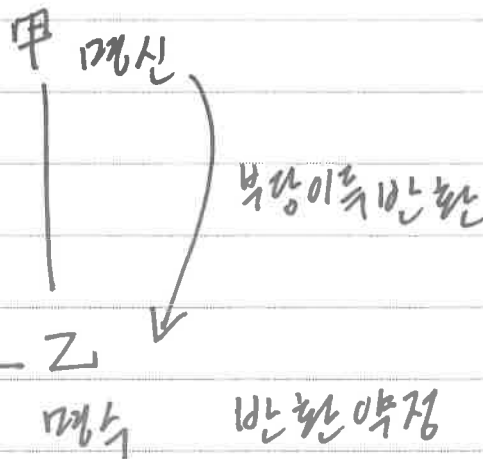 甲 명신
부당이득반환
乙
명수 반환약정